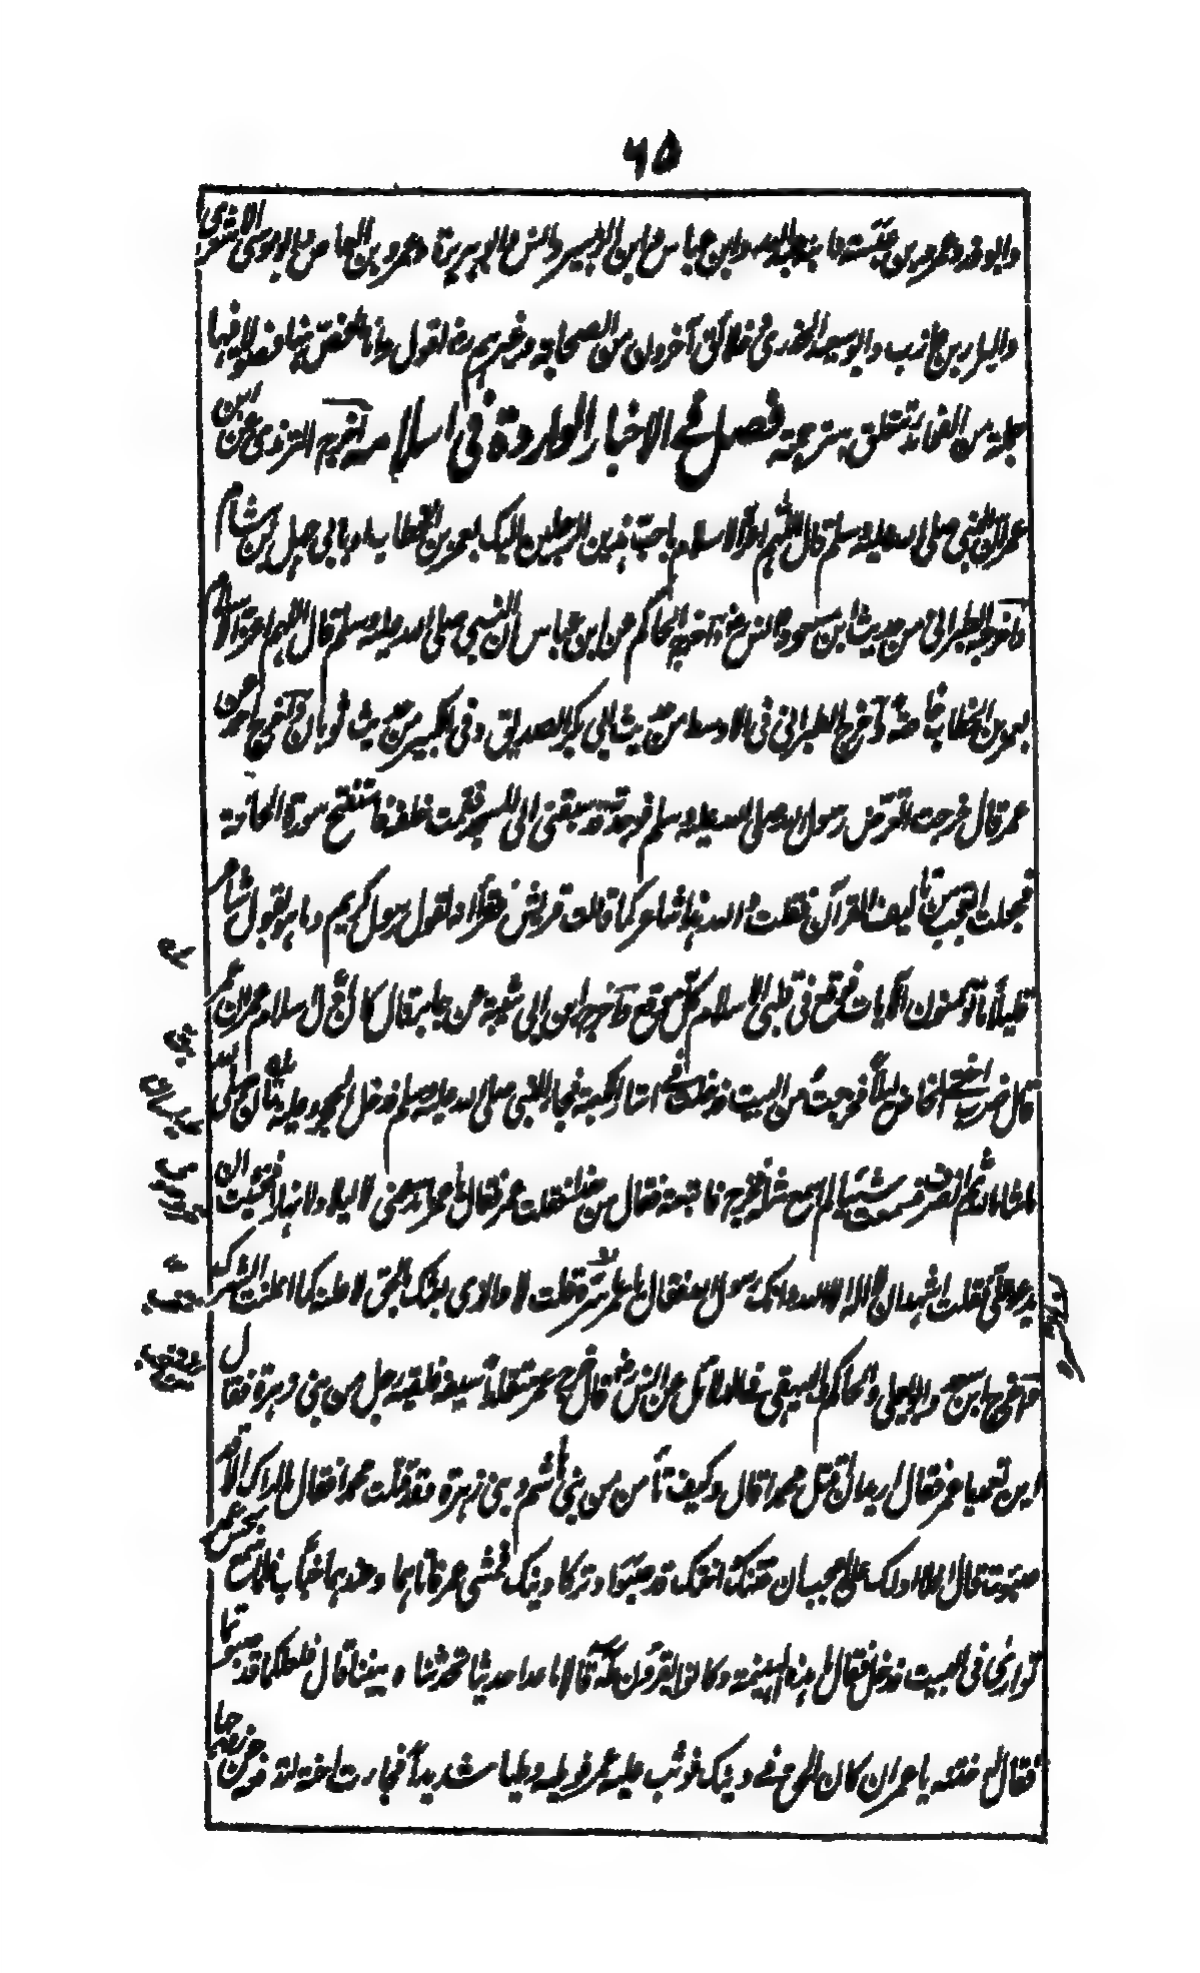 ٦٥
وابوذر وعمرو بن عبسة وابنه عبد الله وابن عباس وابن الزبير وانس وابو هريرة وعمرو بن العاص وابو موسى الاشعرى
والبراء بن عازب وابو سعيد الخدرى وخلائق آخرون من الصحابة وغيرهم رضـ اقول وانا الخص هنا فصولا فيها
جملة من الفوائد تتعلق بترجمته فصل فى الاخبار الواردة فى اسلامه اخرج الترمذى عن ابن
عمر ان النبى صلى الله عليه وسلم قال اللهم اعز الاسلام باحب هذين الرجلين اليك بعمر بن الخطاب او بابى جهل بن هشام
واخرجه الطبرانى من حديث ابن مسعود وانس رضـ واخرج الحاكم عن ابن عباس ان النبى صلى الله عليه وسلم قال اللهم اعز الاسلام
بعمر بن الخطاب خاصة واخرجه الطبرانى فى الاوسط من حديث ابى بكر الصديق وفى الكبير من حديث ثوبان واخرج احمد عن
عمر قال خرجت اتعرض رسول الله صلى الله عليه وسلم فوجدته قد سبقنى الى المسجد فقمت خلفه فاستفتح سورة الحاقة
فجعلت اتعجب من تاليف القرآن فقلت والله هذا شاعر كما قالت قريش فقرأ انه لقول رسول كريم وما هو بقول شاعر
قليلاً ما تؤمنون الآيات فوقع فى قلبى الاسلام كل موقع واخرج ابن ابى شيبة عن جابر قال كان اول اسلام عمر ان عمر
قال ضرب اختى المخاض ليلاً فخرجت من البيت فدخلت فى استار الكعبة فجاء النبى صلى الله عليه وسلم فدخل الحجر وعليه بتان وصلى لله
ما شاء الله ثم انصرف فسمعت شيئا لم اسمع مثله فخرج فاتبعته فقال من هذا فقلت عمر فقال يا عمر ما تدعنى لا ليلا ولا نهارا فخشيت ان
يدعو علىّ فقلت اشهد ان لا اله الا الله وانك رسول الله فقال يا عمر استره قلت لا والذى بعثك بالحق لاعلنه كما اعلنت الشرك
واخرج ابن سعد وابو يعلى والحاكم والبيهقى فى الدلائل عن انس رضـ قال خرج عمر متقلدا سيفه فلقيه رجل من بنى زهرة فقال
اين تعمد يا عمر فقال اريد ان اقتل محمدا قال وكيف تأمن من بنى هاشم وبنى زهرة وقد قتلت محمدا فقال ما اراك الا قد
صبوت قال افلا ادلك على العجب ان ختنك واختك قد صبوا وتركا دينك فمشى عمر فاتاهما وعندهما خباب فلما سمع بحس عمر
توارى فى البيت فدخل فقال ما هذه الهينمة وكانوا يقرؤن طه قالا ما عدا حديثا تحدثنا بيننا قال فلعلكما قد صبوتما
فقال له ختنه يا عمر ان كان الحق فى غير دينك فوثب عليه عمر فوطيه وطيا شديداً فجاءت اخته لتدفعه عن زوجها